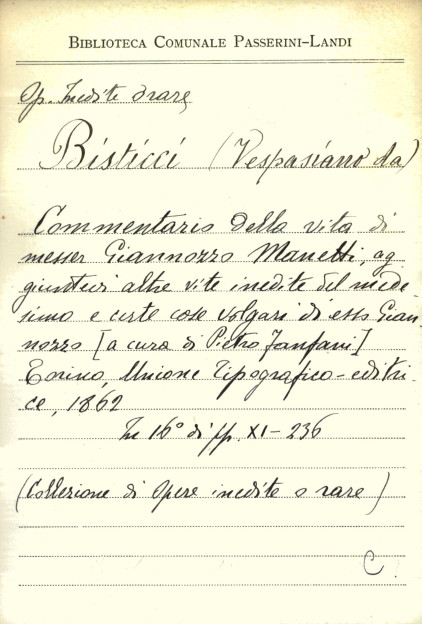 BIBLIOTECA COMUNALE PASSERINI-LANDI
Op. Inedite o rare
Bisticci (Vespasiano da)
Commentario della vita di
messer Giannozzo Manetti, ag
giuntevi altre vite inedite del mede
simo e certe cose volgari di esso Gian
nozzo [a cura di Pietro Fanfani]
Torino, Unione Tipografico-editri
ce, 1862
In 16° di pp. XI-236
(Collezione di Opere inedite o rare)
C.